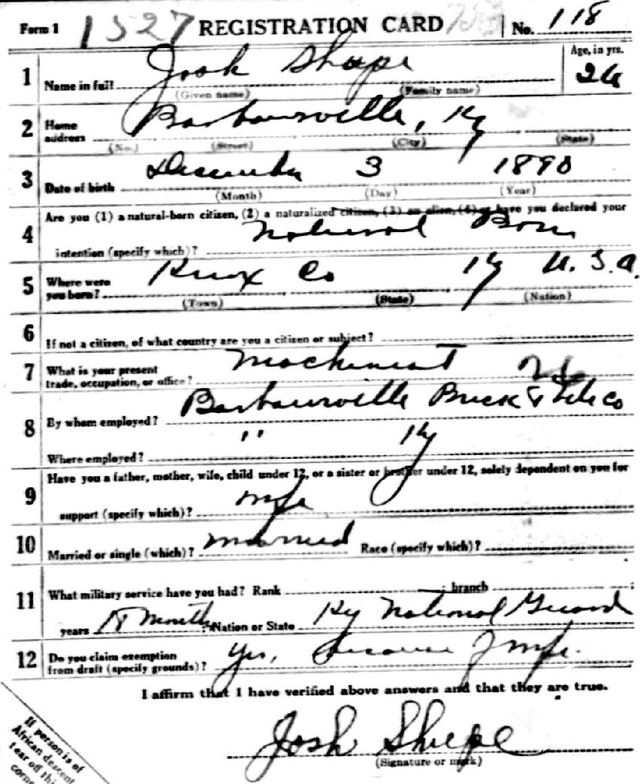 Form 1 1527 REGISTRATION CARD No. 118
1 Name in full Josh Age, in yrs. 26
(Given name) (Family name)
2 Home address Barbourville, Ky
(No.) (Street) (City) (State)
3 Date of birth December 3 1890
(Month) (Day) (Year)
4 Are you (1) a natural-born citizen, (2) a naturalized citizen, (3) an alien, (4) or have you declared your
intention (specify which)? Natural Born
5 Where were you born? Knox Co Ky U. S. A.
(Town) (State) (Nation)
6 If not a citizen, of what country are you a citizen or subject?
7 What is your present trade, occupation, or office? Machinist
8 By whom employed? Barbourville Brick & Tile Co
Where employed? " Ky
9 Have you a father, mother, wife, child under 12, or a sister or brother under 12, solely dependent on you for
support (specify which)? Wife
10 Married or single (which)? Married Race (specify which)?
11 What military service have you had? Rank ; branch ;
years 18 Months ; Nation or State Ky National Guard
12 Do you claim exemption from draft (specify grounds)? Yes, because of wife.
I affirm that I have verified above answers and that they are true.
Josh
(Signature or mark)
If person is of
African descent
tear off this
corner